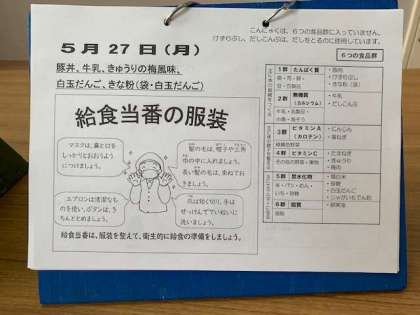 こんにゃくは、6つの食品群に入っていません。
けずりぶし、だしこんぶは、だしをとるのに使用しています。
5月27日(月)
豚丼、牛乳、きゅうりの梅風味、
白玉だんご、きな粉(袋・白玉だんご)
6つの食品群
給食当番の服装
マスクは、鼻と口を
しっかりとおおうよう
につけましょう。
髪の毛は、帽子や三角
巾の中に入れましょう。
長い髪の毛は、束ねておき
きましょう。
エプロンは清潔なも
のを使い、ボタンは、き
ちんととめましょう。
爪は短く切り、手は
せっけんでていねいに
洗いましょう。
給食当番は、服装を整えて、衛生的に給食の準備をしましょう。
1群 たんぱく質
・豚肉
・けずりぶし
・きな粉
2群 無機質
(カルシウム)
・牛乳
・だしこんぶ
3群 ビタミンA
(カロテン)
・にんじん
緑黄色野菜
4群 ビタミンC
・たまねぎ
・きゅうり
・梅肉
5群 炭水化物
・精白米
・砂糖
・白玉だんご
・じゃがいもでん粉
6群 脂質